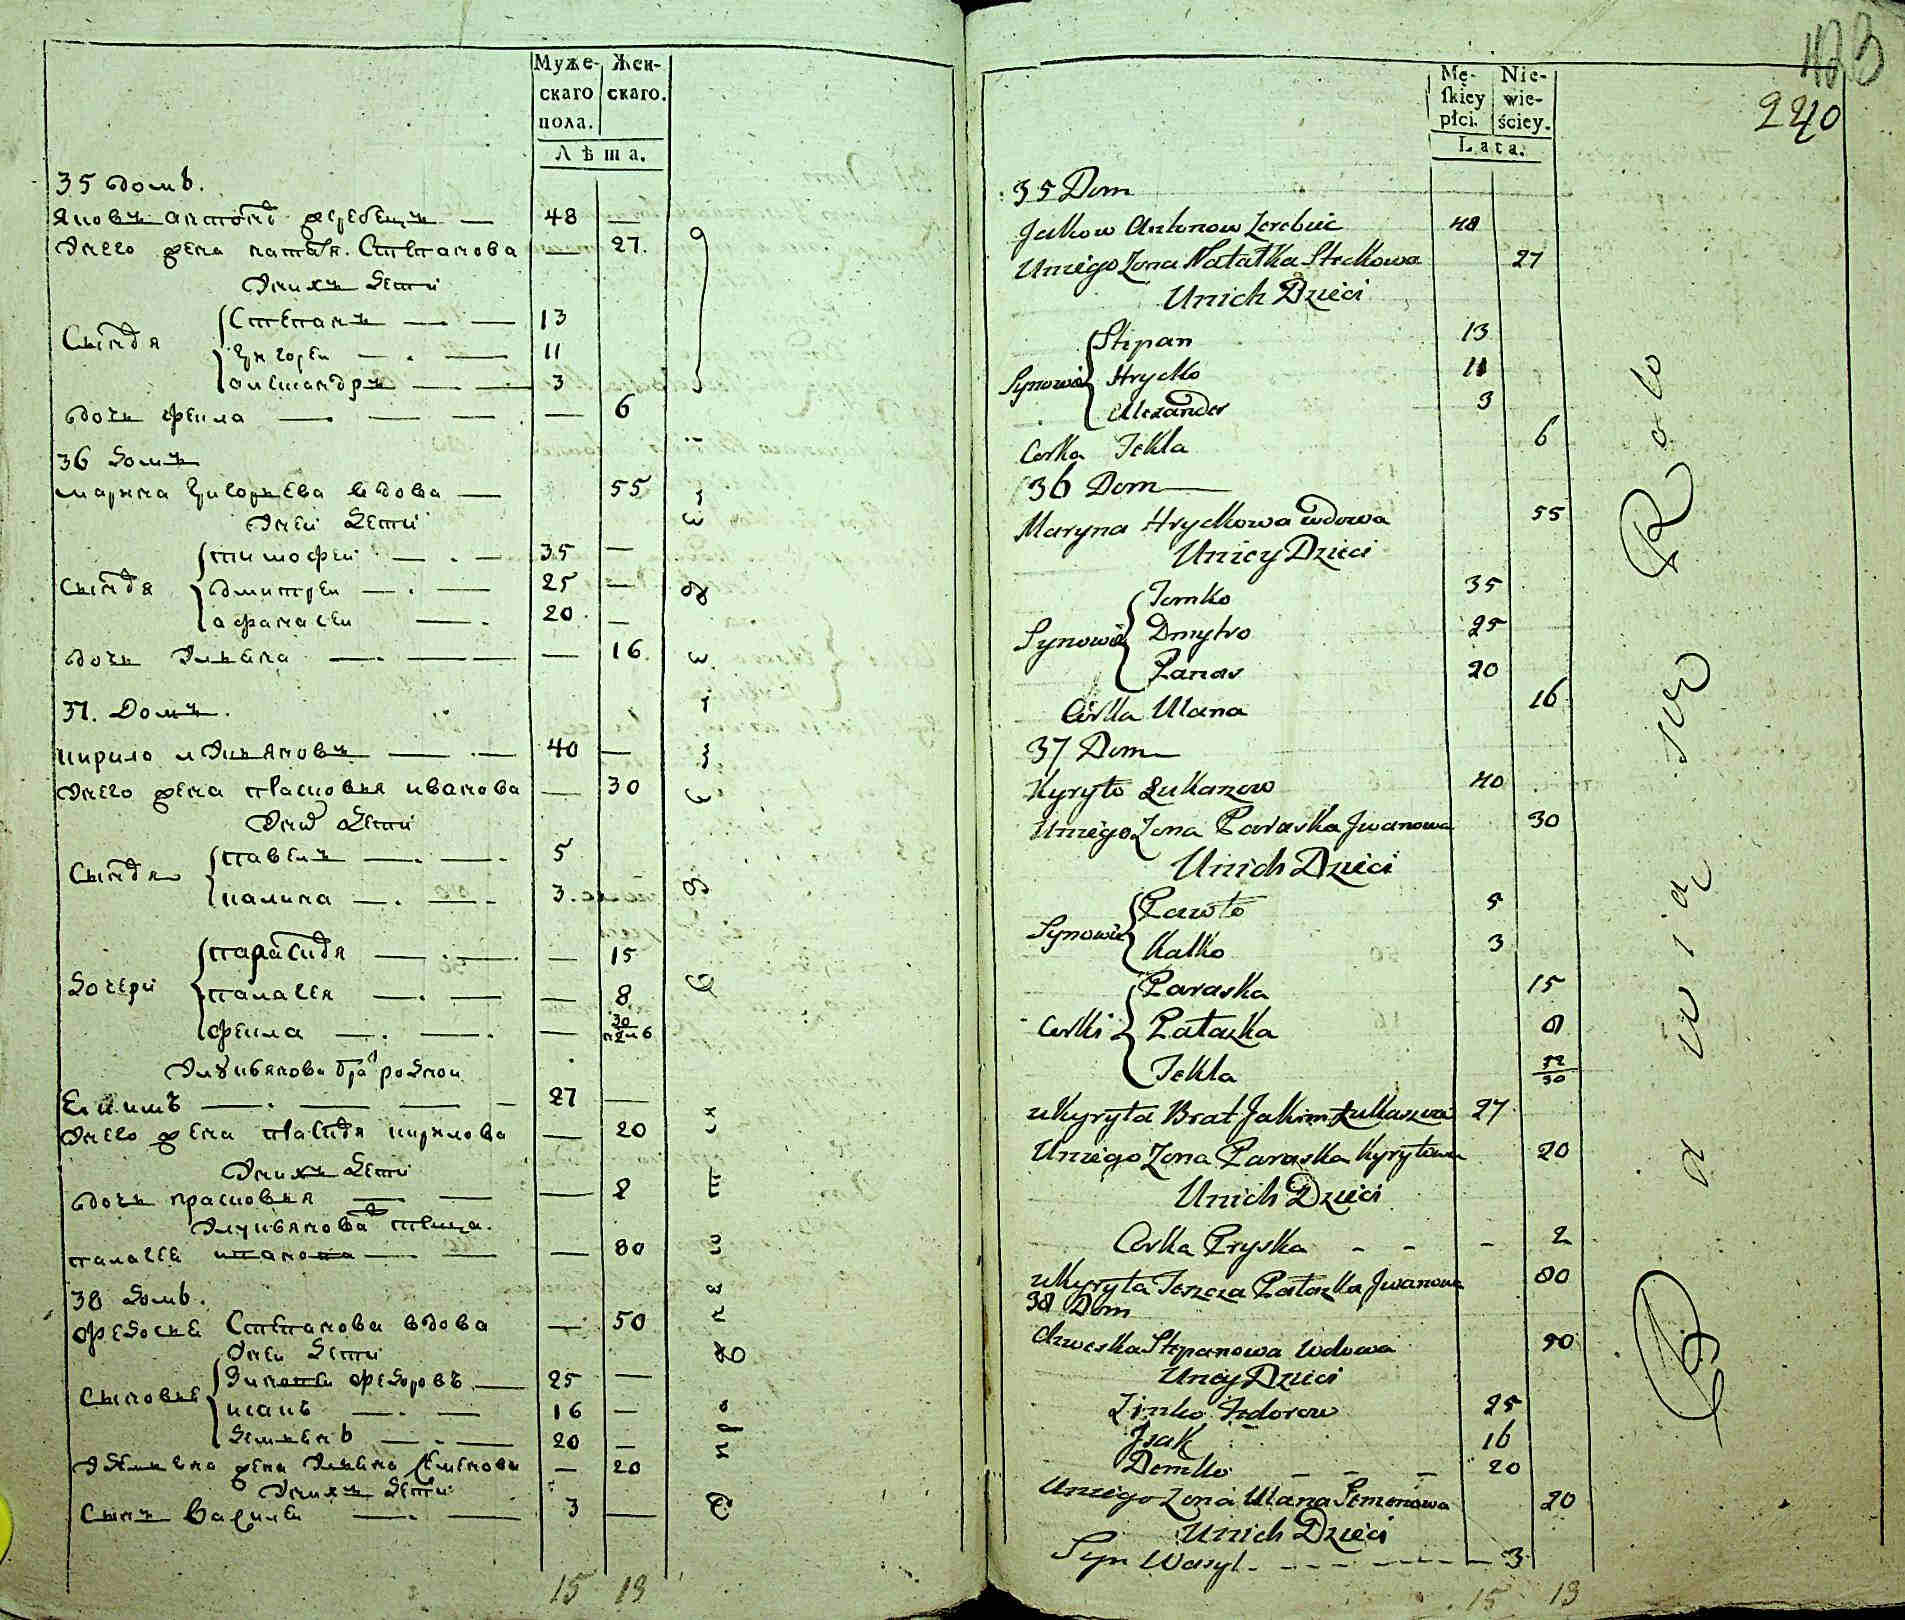 Муже-
скаго
пола.
Жен-
скаго.
Лѣта.
35 домъ.
Яковъ антоновъ жеребецъ — 48 —
Унего жена натал. Степанова — 27.
Унихъ дети
Сыновя
Степанъ — 13
григореи — 11
александръ — 3
дочь фекла — 6
36 домъ
марина григорьева вдова — 55
Унеи дети
Сыновя
тимофеи — 35 —
дмитреи — 25 —
афанасеи — 20 —
дочь Ульяна — 16
37. Домъ.
кирило лукьяновъ — 40 —
Унего жена прасковья иванова — 30
Уних дети
Сыновя
павелъ — 5
калина — 3
дочери
парасковя — 15
паласея — 8
фекла — 30
Улукьянова братъ родной
Екимъ — 27 —
Унего жена парасковя кирилова — 20
Унихъ дети
дочь прасковья — 2
Улукьянова теща.
паласея — 80
38 домъ.
Федосья Степанова вдова — 50
Унеи дети
Сыновье
Федоровъ — 25 —
исакъ — 16 —
демьянъ — 20 —
Удемьяна жена Ульяна Семенова — 20
Унихъ дети
Сынъ Василеи — 3 —
15 13
123
240
Mę-
skiey
płci.
Nie-
wie-
ściey.
Lata.
35 Dom
Jakow Antonow Zerebiec 48
Uniego Zona Natałka Steckowa 27
Unich Dzieci
Synowie
Stepan 13
Hrycko 11
Alexander 3
Corka Tekla 6
36 Dom
Maryna Hryckowa wdowa 55
Uniey Dzieci
Synowie
Tomko 35
Dmytro 25
Panas 20
Corka Ulana 16
37 Dom
Kyryło Łukanow 40
Uniego Zona Paraska Jwanowa 30
Unich Dzieci
Synowie
Pawło 5
Kalko 3
Corki
Paraska 15
Patazka 8
Tekla 52/30
uKyryła Brat Jakim Łukaszow 27
Uniego Zona Paraska Kyryłowa 20
Unich Dzieci
Corka Pryska - - - 2
uKyryła Teszcza Patazka Jwanowa 80
38 Dom
Chweska Stepanowa Wdowa 50
Uniey Dzieci
Zinko Fedorow 25
Jsak 16
Demko - - - 20
Uniego Zona Ulana Semenowa 20
Unich Dzieci
Syn Wasyl - - - 3
15 13